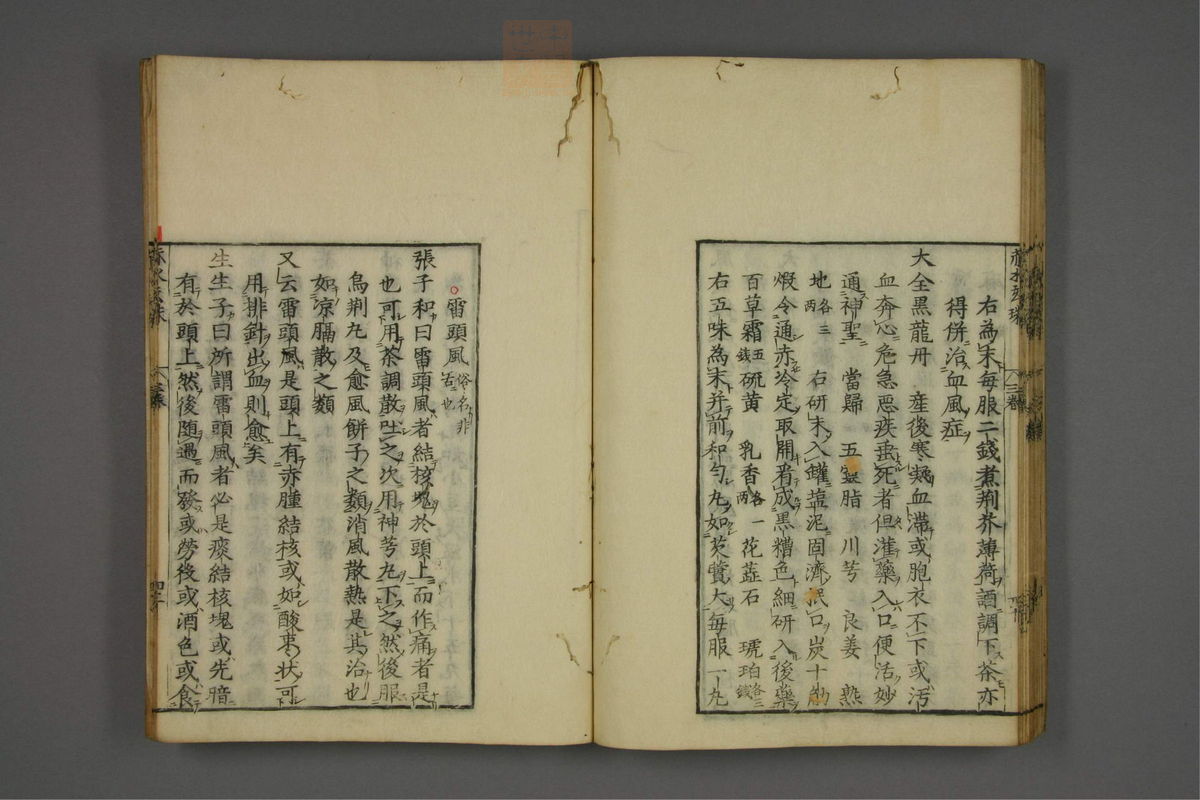 右為末每服二錢煮荆芥薄荷酒調下茶亦
得併治血風症
大全黒龍丹 産後寒熱血滯或胞衣不下或汚
血奔心危急惡疾垂死者但灌藥入口便活妙
通神聖 當歸 五靈脂 川芎 良姜 熟
地各三兩 右研末入罐塩泥固濟 口炭十觔
煆令通赤冷定取開看成黒糟色細研入後藥
百草霜五錢 硫黄 乳香各一兩 花蕋石 琥珀各三錢
右五味為末并前和勻丸如芡實大每服一丸
雷頭風俗名非舌也
張子和曰雷頭風者結核塊於頭上而作痛者是
也可用茶調散吐之次用神芎丸下之然後服
烏荆丸及愈風餅子之類消風散熱是其治也
如凉膈散之類
又云雷頭風是頭上有赤腫結核或如酸棗状可
用排針出血則愈矣
生生子曰所謂雷頭風者必是痰結核塊或先暗
有於頭上然後随遇而發或勞役或酒色或食
赤水玄珠 三卷